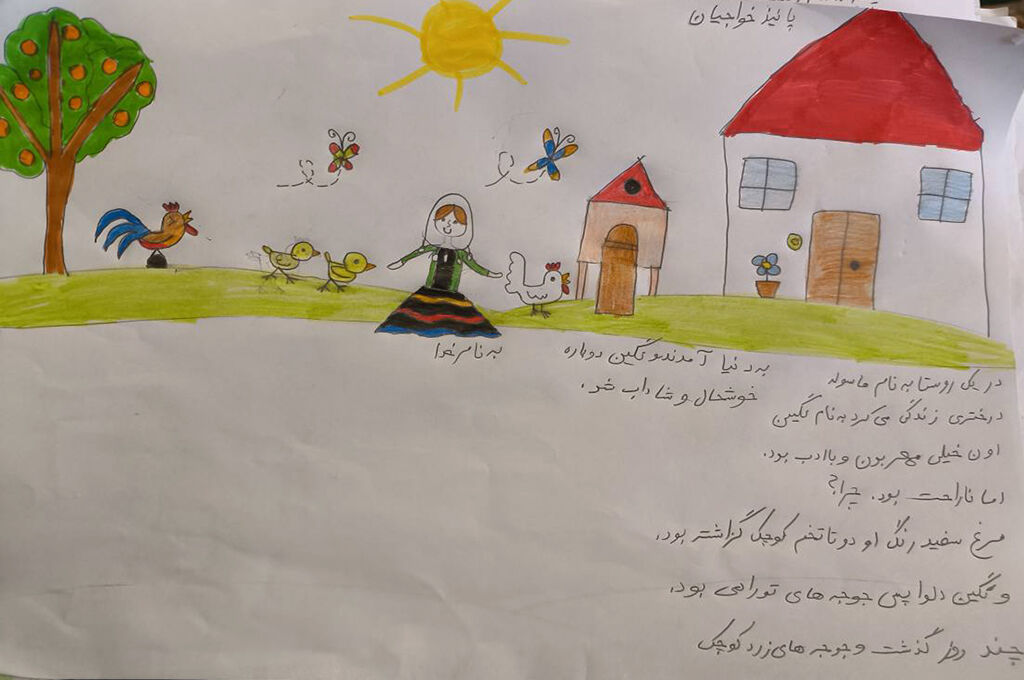 پائیز خواجیان
به نام خدا
در یک روستا به نام ماسوله
دختری زندگی می کرد به نام نگین
اون خیلی مهربون و با ادب بود.
اما ناراحت بود. چرا؟
مرغ سفید رنگ او دو تا تخم کوچک گزاشته بود.
و نگین دلواپس جوجه های تو راهی بود.
چند روز گذشت و جوجه های زرد کوچک
به دنیا آمدند و نگین دوباره
خوشحال و شاداب شد.